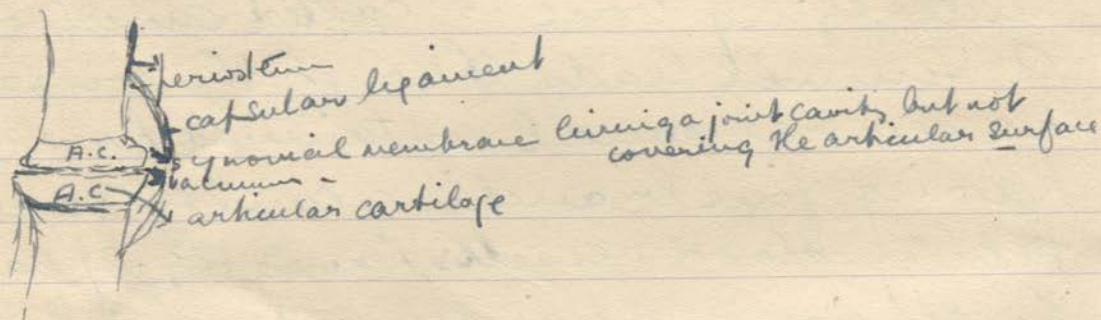 periosteum
capsular ligament
synovial membrane lining a joint cavity but not
covering the articular surface
A.C.
vacuum -
A.C
articular cartilage